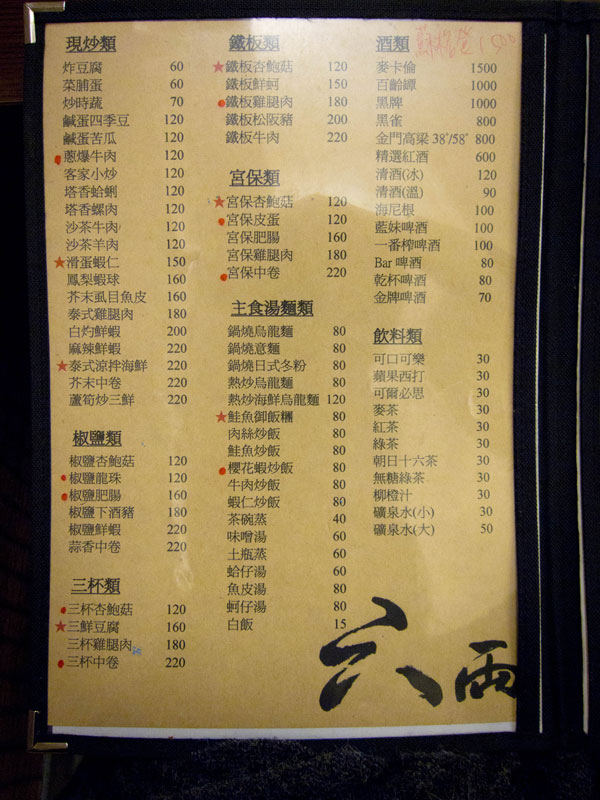 現炒類
炸豆腐 60
菜脯蛋 60
炒時蔬 70
鹹蛋四季豆 120
鹹蛋苦瓜 120
蔥爆牛肉 120
客家小炒 120
塔香蛤蜊 120
塔香螺肉 120
沙茶牛肉 120
沙茶羊肉 120
★滑蛋蝦仁 150
鳳梨蝦球 160
芥末虱目魚皮 160
泰式雞腿肉 180
白灼鮮蝦 200
麻辣鮮蝦 220
★泰式涼拌海鮮 220
芥末中卷 220
蘆筍炒三鮮 220
椒鹽類
椒鹽杏鮑菇 120
椒鹽龍珠 120
椒鹽肥腸 160
椒鹽下酒豬 180
椒鹽鮮蝦 220
蒜香中卷 220
三杯類
三杯杏鮑菇 120
★三鮮豆腐 160
三杯雞腿肉 180
三杯中卷 220
鐵板類
★鐵板杏鮑菇 120
鐵板鮮蚵 150
鐵板雞腿肉 180
鐵板松阪豬 200
鐵板牛肉 220
宮保類
★宮保杏鮑菇 120
宮保皮蛋 120
宮保肥腸 160
宮保雞腿肉 180
宮保中卷 220
主食湯麵類
鍋燒烏龍麵 80
鍋燒意麵 80
鍋燒日式冬粉 80
熱炒烏龍麵 80
熱炒海鮮烏龍麵 120
★鮭魚御飯糰 80
肉絲炒飯 80
鮭魚炒飯 80
櫻花蝦炒飯 80
牛肉炒飯 80
蝦仁炒飯 80
茶碗蒸 40
味噌湯 60
土瓶蒸 60
蛤仔湯 60
魚皮湯 80
蚵仔湯 80
白飯 15
酒類
麥卡倫 1500
百齡罈 1000
黑牌 1000
黑雀 800
金門高梁 38°/58° 800
精選紅酒 600
清酒(冰) 120
清酒(溫) 90
海尼根 100
藍妹啤酒 100
一番榨啤酒 100
Bar 啤酒 80
乾杯啤酒 80
金牌啤酒 70
飲料類
可口可樂 30
蘋果西打 30
可爾必思 30
麥茶 30
紅茶 30
綠茶 30
朝日十六茶 30
無糖綠茶 30
柳橙汁 30
礦泉水(小) 30
礦泉水(大) 50
六兩